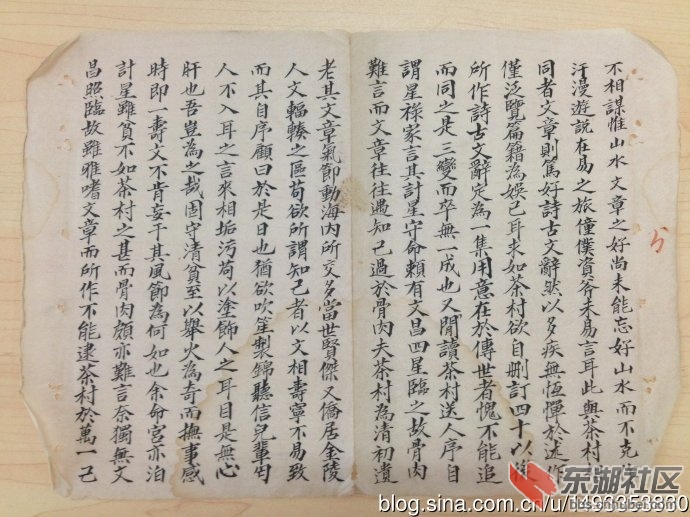 不相謀惟山水文章之好尚未能忘好山水而不克
汗漫遊說在易之旅僮僕資斧未易言耳此與茶村
同者文章則篤好詩古文辭然以多疾無恆憚於述作
僅泛覽篇籍為娛已耳求如茶村欲自刪訂四十以後
所作詩古文辭定為一集用意在於傳世者愧不能追
而同之是三變而卒無一成也又閒讀茶村送人序自
謂星祿家言其計星守命賴有文昌四星臨之故骨肉
難言而文章往往遇知己過於骨肉夫茶村為清初遺
老其文章氣節動海內所交多當世賢傑又僑居金陵
人文輻輳之區苟欲所謂知己者以文相壽寧不易致
而其自序顧曰於是日也猶欲吹笙製錦聽信兒輩匄
人不入耳之言來相垢污苟以塗飾人之耳目是無心
肝也吾豈為之哉固守清貧至以舉火為奇而撫事感
時即一壽文不肯妄干其風節為何如也余命宮亦泊
計星雖貧不如茶村之甚而骨肉頗亦難言奈獨無文
昌照臨故雖雅嗜文章而所作不能逮茶村於萬一己
东湖社区